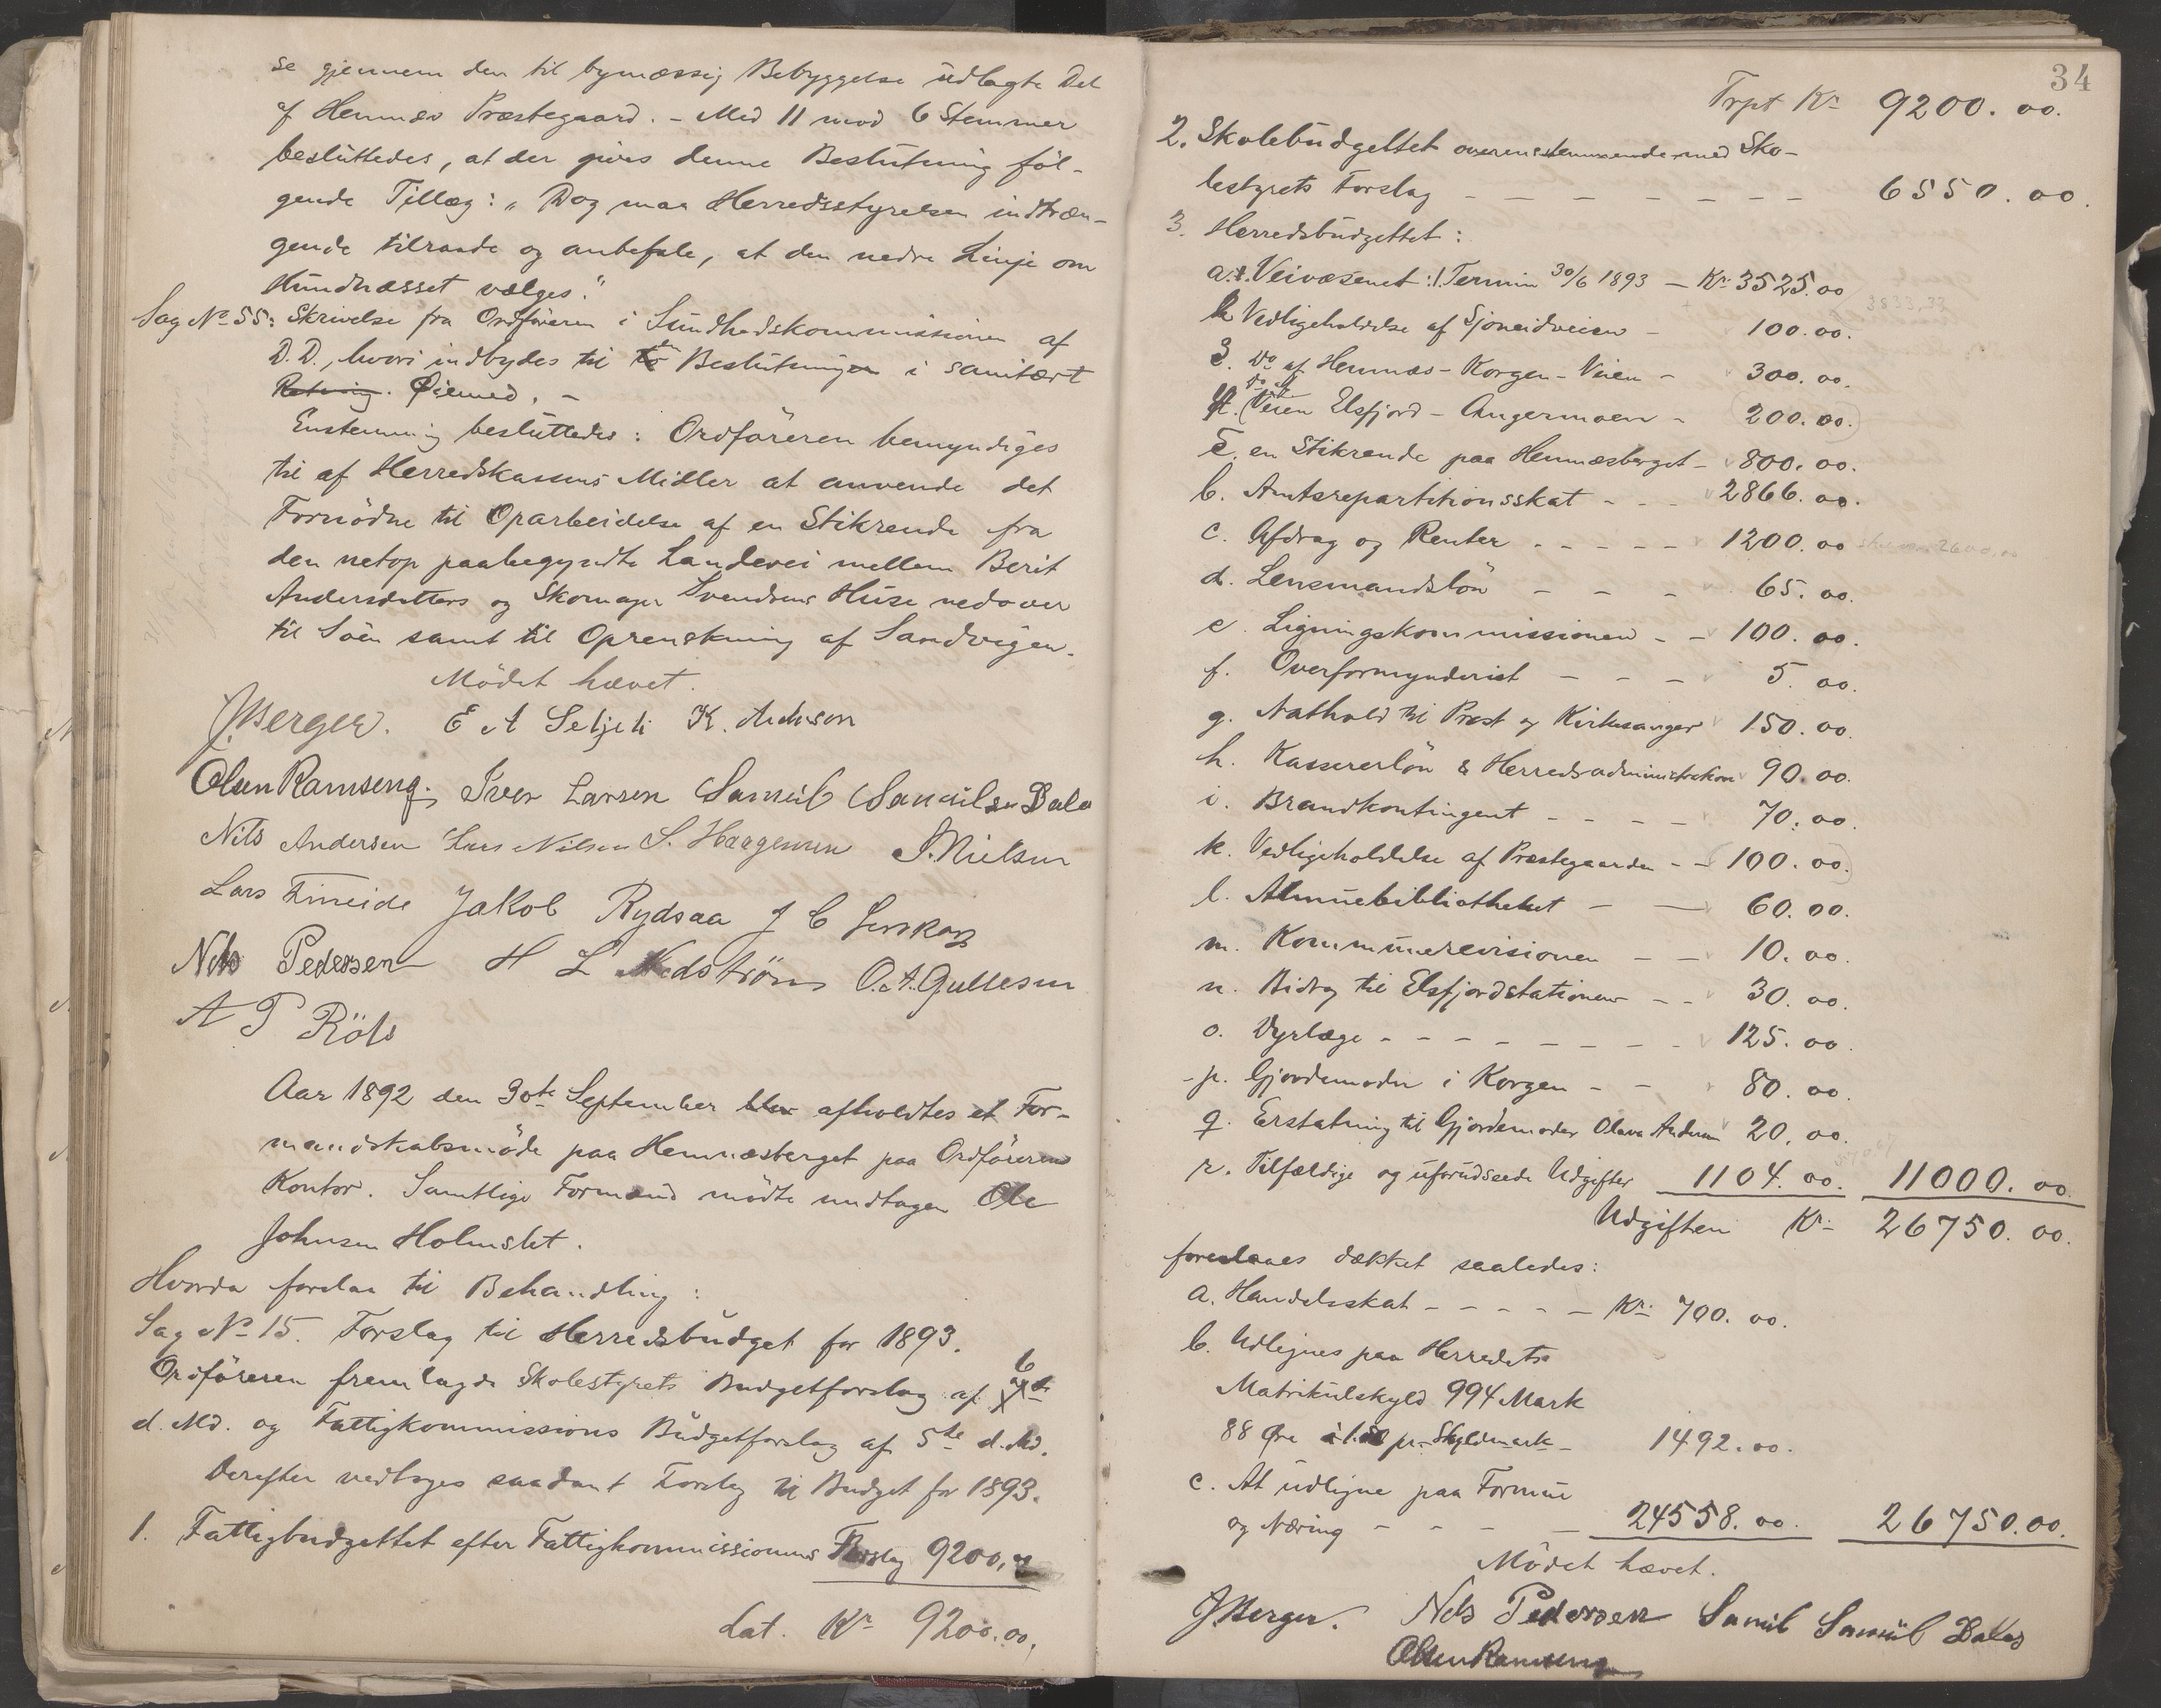 se gjennem den til bymæssig Bebyggelse udlagte Del
af Hemnæs Præstegaard. - Med 11 mod 6 Stemmer
besluttedes, at der gives denne Beslutning föl-
gende Tillæg: „Dog maa Herredsstyrelsen indtræn-
gende tilraade og anbefale, at den nedre Linje om
Hundnæsset vælges."
Sag No 55: Skrivelse fra Ordföreren i Sundhedskommissionen af
D.D., hvori indbydes til Beslutninger i sanitært
Retning. Øiemed. -
Enstemmig besluttedes: Ordföreren bemyndiges
til af Herredskassens Midler at anvende det
Fornödne til Oparbeidelse af en Stikrende fra
den netop paabegyndte Landevei mellem Berit
Andersdatters og Skomager Svendsens Huse nedover
til Söen samt til Oprenskning af Sandvigen.
Mödet hævet.
J Berger. E A Seljeli K. Andersen
Olsen Ramseng. Iver Larsen Samuel Samuelsen Dale
Nils Andersen Lars Nilsen S. Haagensen J. Nielsen
Lars Finneide Jakob Rydsaa J C
Nils Pedersen H L Nedström O. A. Gullesen
A P Röls
Aar 1892 den 30te September blev afholdtes et For-
mandskabsmöde paa Hemnæsberget paa Ordförerens
Kontor. Samtlige Formænd mödte undtagen Ole
Johnsen Holmslet.
Hvorda forelaa til Behandling:
Sag No 15. Forslag til Herredsbudget for 1893.
Ordföreren fremlagde Skolestyrets Budgetforslag af 6
d. Md. og Fattigkommissions Budgetforslag af 5te d. Md.
Derefter vedtoges saadant Forslag til Budget for 1893.
1. Fattigbudgettet efter Fattigkommissionens Forslag 9200,00
Lat. Kr 9200.00.
34
Trpt Kr 9200.00.
2. Skolebudgettet overensstemmende med Sko-
lestyrets Forslag - - - - - - - 6550.00.
3. Herredsbudgettet:
a. 1. Veivæsenet: 1. Termin 30/6 1893 - Kr 3525.00 3833,33
2. Vedligeholdelse af Sjoneidveien - 100.00.
3. Do af Hemnæs-Korgen-Veien - 300.00.
4. do af Veien Elsfjord - Angermoen - 200.00.
5. en Stikrende paa Hemnæsberget - 800.00.
b. Amtsrepartitionsskat - - - 2866.00.
c. Afdrag og Renter - - - - - 1200.00
d. Lensmandslön - - - 65.00.
e. Ligningskommissionen - - 100.00.
f. Overformynderiet - - - 5.00.
g. Nathold til Præst og Kirkesanger 150.00.
h. Kassererlön & Herredsadministration 90.00.
i. Brandkontingent - - - - 70.00.
k. Vedligeholdelse af Præstegaarden - - 100.00.
l. Almuebibliotheket - - 60.00.
m. Kommunerevisionen - - 10.00.
n. Bidrag til Elsfjordstationen - - 30.00.
o. Dyrlæge - - - - - - - - 125.00.
p. Gjordemoder i Korgen - - 80.00.
q. Erstatning til Gjordemoder Olava Andersen 20.00.
r. Tilfældige og uforudseede Udgifter 1104.00. 11000.00.
Udgiften Kr 26750.00.
foreslaaes dækket saaledes:
a. Handelsskat - - - - - Kr 700.00.
b. Udlignes paa Herredets
Matrikulskyld 994 Mark
88 Øre à 1.50 pr. Skyldmark - 1492.00.
c. At udligne paa Formue
og Næring - - - - 24558.00. 26750.00.
Mödet hævet.
J Berger. Nils Pedersen Samuel Samuelsen Dale
Olsen Ramseng